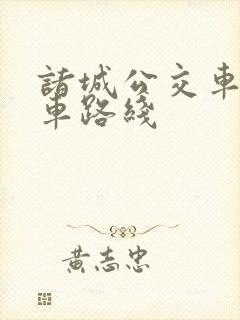 諸城公交車
車路綫
黃志忠